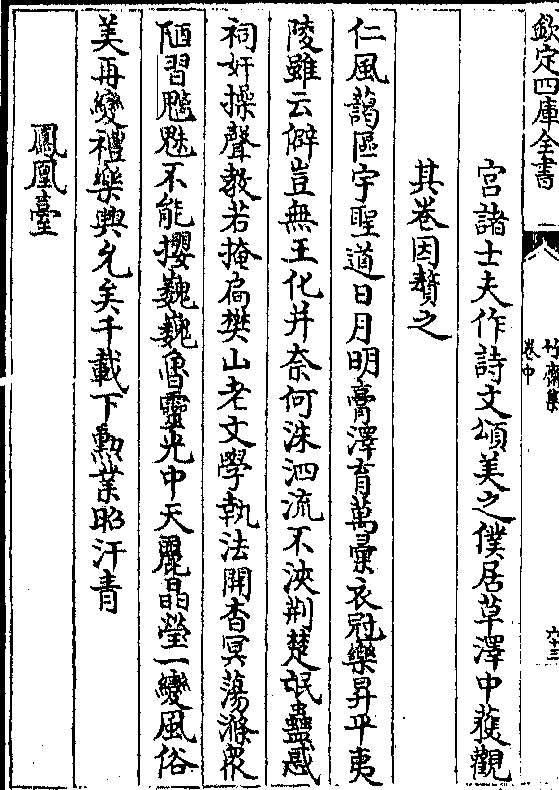 欽定四庫全書
竹齋集
卷中
六十三
宮諸士夫作詩文頌美之僕居草澤中獲觀
其卷因賛之
仁風藹區宇聖道日月明膏澤育萬彚衣冠樂昇平夷
陵雖云僻豈無王化并奈何洙泗流不浹荆楚氓蠱惑
祠奸操聲教若掩扄樊山老文學執法開杳冥蕩滌衆
陋習魑魅不能攖巍巍魯靈光中天麗晶瑩一變風俗
美再變禮樂興允矣千載下勲業昭汗青
鳳凰臺